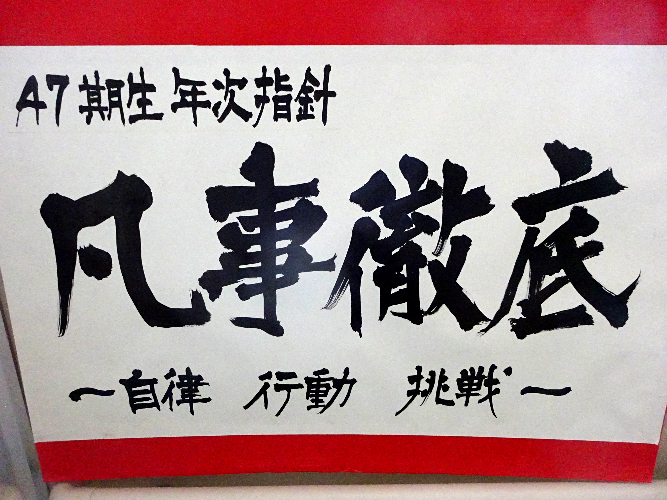 47期生 年次指針
凡事徹底
～自律 行動 挑戦～